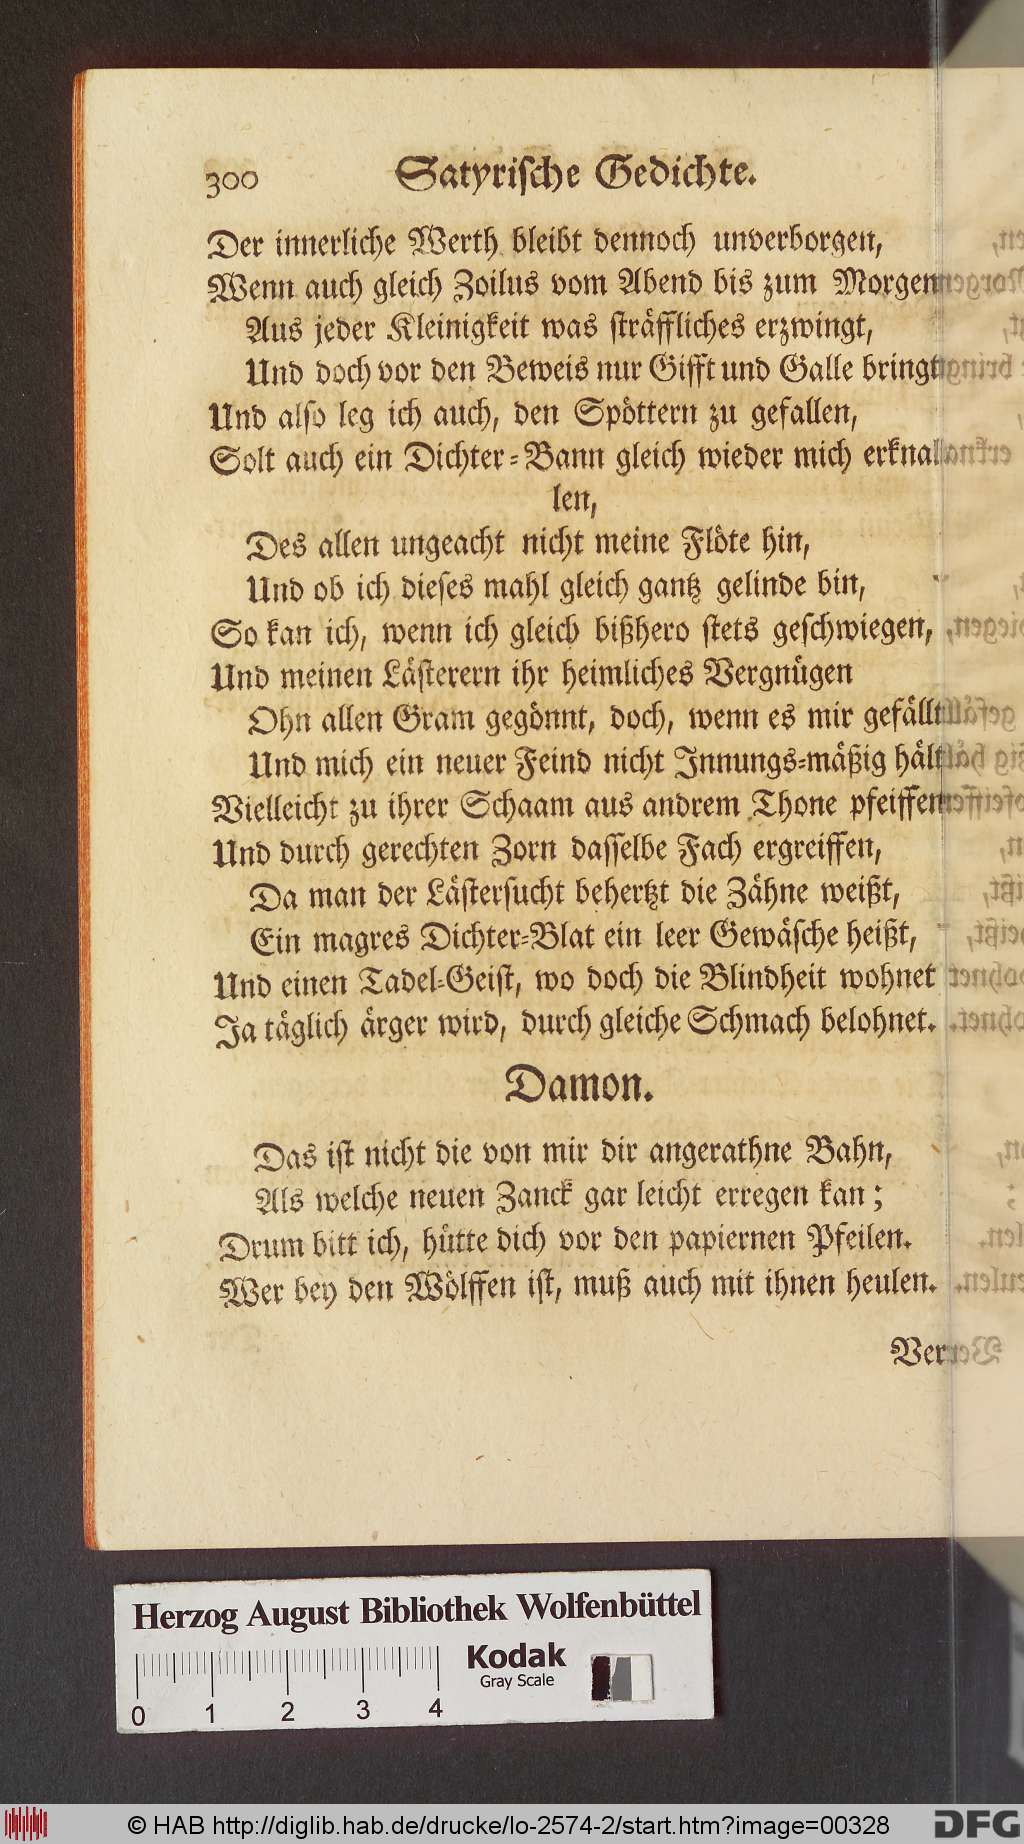 300 Satyrische Gedichte.
Der innerliche Werth bleibt dennoch unverborgen,
Wenn auch gleich Zoilus vom Abend bis zum Morgen
Aus jeder Kleinigkeit was sträffliches erzwingt,
Und doch vor den Beweis nur Gifft und Galle bringt
Und also leg ich auch, den Spöttern zu gefallen,
Solt auch ein Dichter-Bann gleich wieder mich erknal-
len,
Des allen ungeacht nicht meine Flöte hin,
Und ob ich dieses mahl gleich gantz gelinde bin,
So kan ich, wenn ich gleich bißhero stets geschwiegen,
Und meinen Lästerern ihr heimliches Vergnügen
Ohn allen Gram gegönnt, doch, wenn es mir gefällt
Und mich ein neuer Feind nicht Innungs-mäßig hält
Vielleicht zu ihrer Schaam aus andrem Thone pfeiffen
Und durch gerechten Zorn dasselbe Fach ergreiffen,
Da man der Lästersucht behertzt die Zähne weißt,
Ein magres Dichter-Blat ein leer Gewäsche heißt,
Und einen Tadel-Geist, wo doch die Blindheit wohnet
Ja täglich ärger wird, durch gleiche Schmach belohnet.
Damon.
Das ist nicht die von mir dir angerathne Bahn,
Als welche neuen Zanck gar leicht erregen kan;
Drum bitt ich, hütte dich vor den papiernen Pfeilen.
Wer bey den Wölffen ist, muß auch mit ihnen heulen.
Ver-
Herzog August Bibliothek Wolfenbüttel
Kodak
Gray Scale
0 1 2 3 4
© HAB http://diglib.hab.de/drucke/lo-2574-2/start.htm?image=00328
DFG